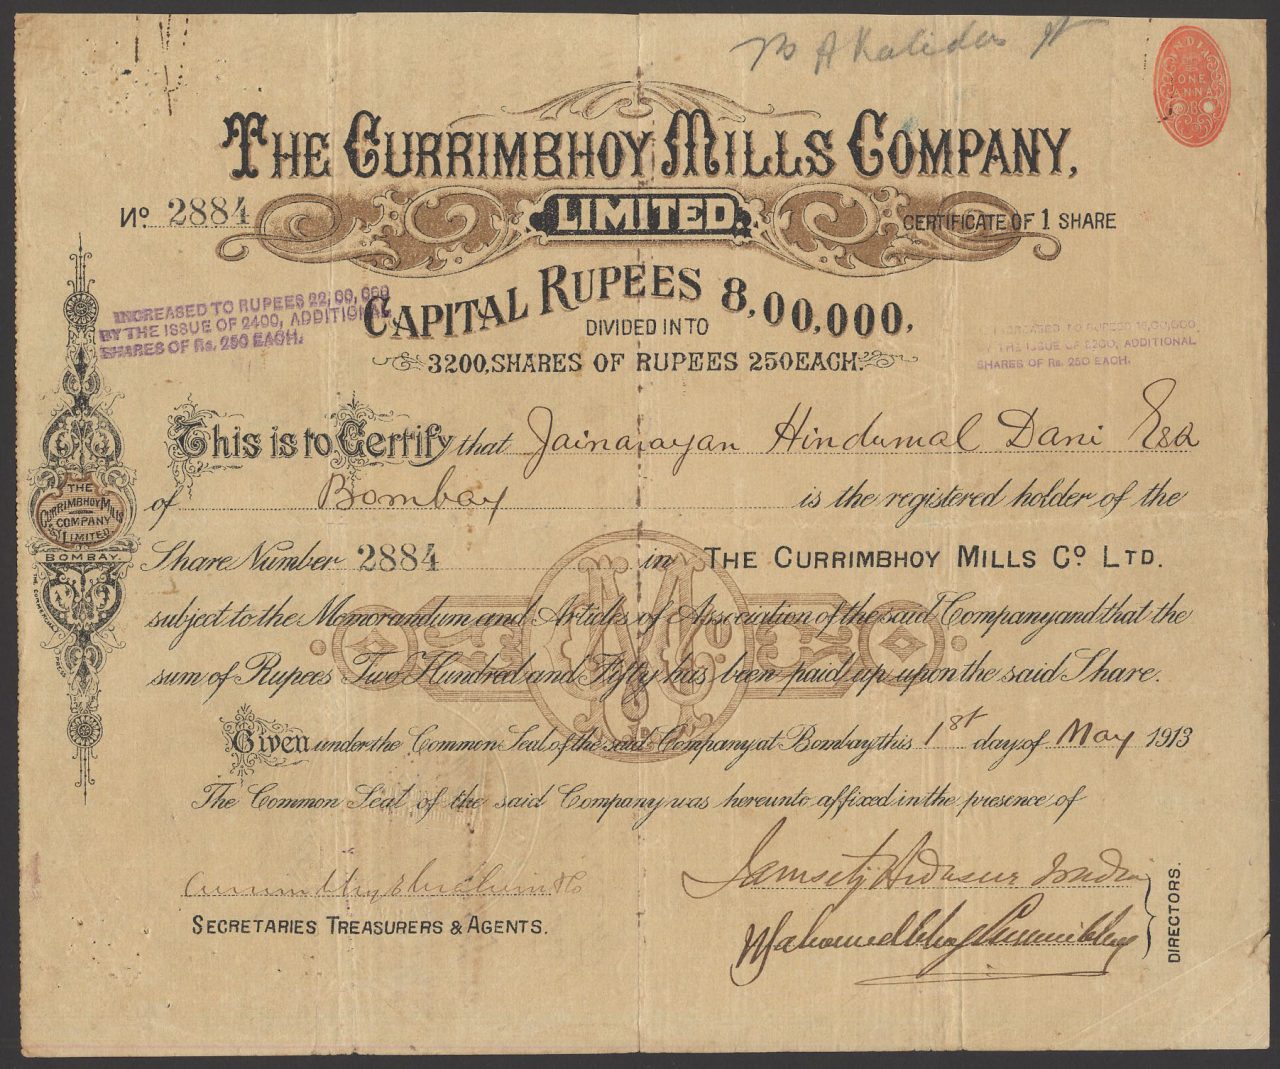 INDIA
ONE
ANNA
THE CURRIMBHOY MILLS COMPANY,
LIMITED.
No. 2884
CERTIFICATE OF 1 SHARE
CAPITAL RUPEES 8,00,000,
DIVIDED INTO
3200, SHARES OF RUPEES 250 EACH.
INCREASED TO RUPEES 22,00,000
BY THE ISSUE OF 2400, ADDITIONAL
SHARES OF Rs. 250 EACH.
INCREASED TO RUPEES 16,00,000
BY THE ISSUE OF 3200, ADDITIONAL
SHARES OF Rs. 250 EACH.
This is to Certify that Jainarayan Hindumal Dani Esq
of Bombay is the registered holder of the
Share Number 2884 in THE CURRIMBHOY MILLS Co. LTD.
subject to the Memorandum and Articles of Association of the said Company and that the
sum of Rupees Two Hundred and Fifty has been paid up upon the said Share.
Given under the Common Seal of the said Company at Bombay this 1st day of May 1913
The Common Seal of the said Company was hereunto affixed in the presence of
Currimbhoy Ebrahim & Co
SECRETARIES TREASURERS & AGENTS.
Jamsetji Ardaseer Wadia
Mahomedbhoy Currimbhoy
DIRECTORS.
THE
CURRIMBHOY MILLS
COMPANY
LIMITED.
BOMBAY.